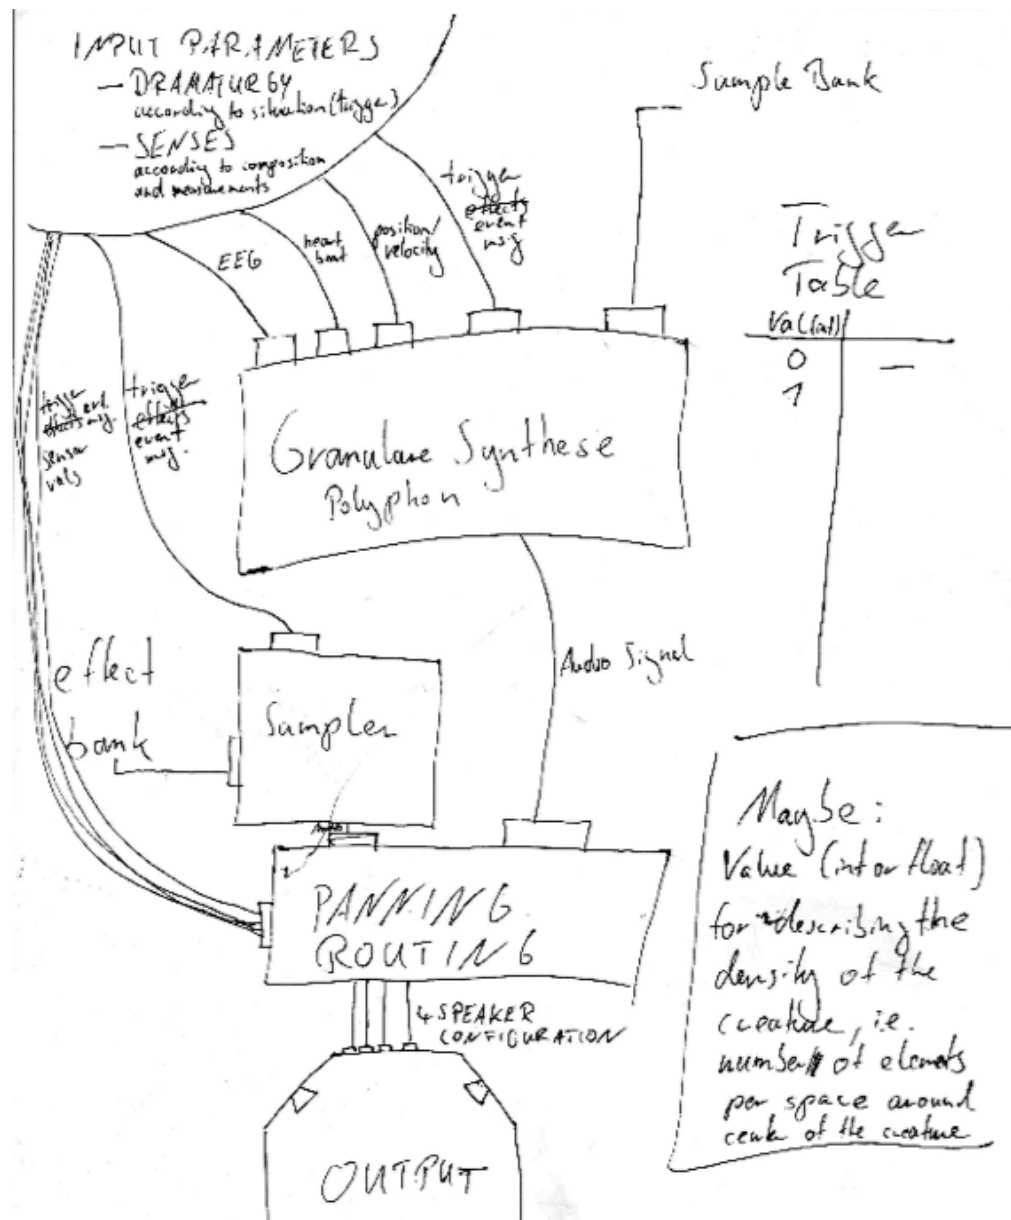 INPUT PARAMETERS
— DRAMATURGY
according to situation (trigger)
— SENSES
according to composition
and measurements
Sample Bank
EEG
heart
beat
position/
velocity
trigger
effects
event
msg
Trigger
Table
Val(int)
0 —
1
trigger
effects msg.
sensor
vals
trigger
effects
event
msg.
Granulare Synthese
Polyphon
Audio Signal
effect
bank
Sampler
Audio
PANNING
ROUTING
4 SPEAKER
CONFIGURATION
OUTPUT
Maybe:
Value (int or float)
for describing the
density of the
creature, i.e.
number of elements
per space around
center of the creature